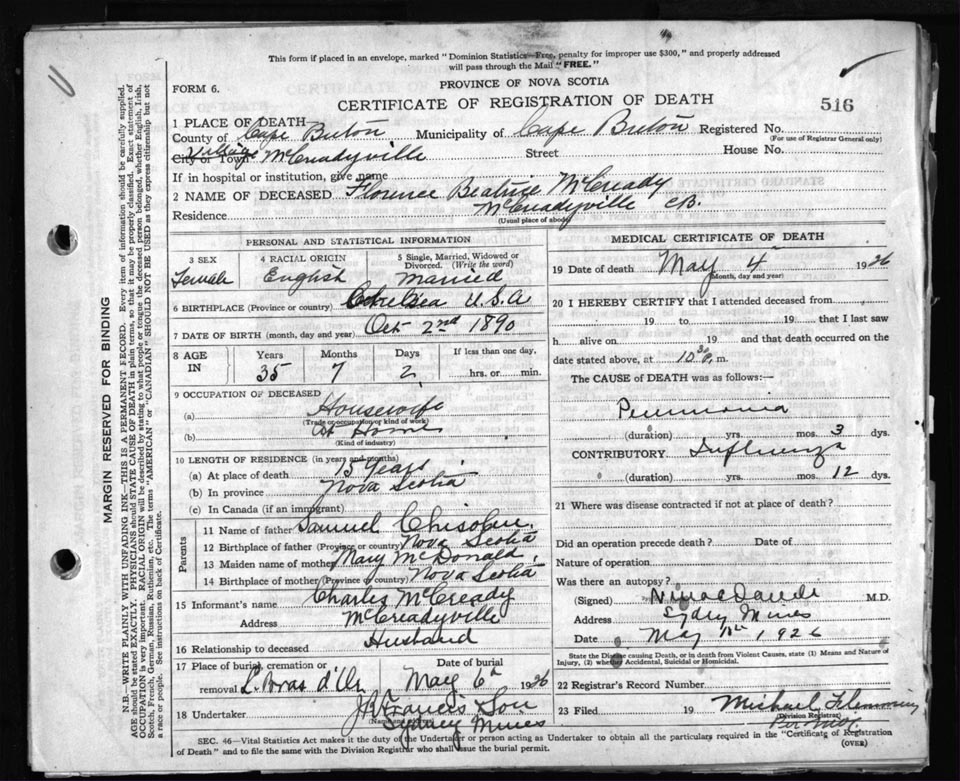 This form if placed in an envelope, marked "Dominion Statistics—Free, penalty for improper use $300," and properly addressed
will pass through the Mail "FREE."
FORM 6.
PROVINCE OF NOVA SCOTIA
CERTIFICATE OF REGISTRATION OF DEATH
516
1 PLACE OF DEATH
County of Cape Breton Municipality of Cape Breton Registered No.
(For use of Registrar General only)
Village
City or Town McCreadyville Street House No.
If in hospital or institution, give name
2 NAME OF DECEASED Florence Beatrice McCready
Residence McCreadyville CB.
(Usual place of abode)
PERSONAL AND STATISTICAL INFORMATION
3 SEX Female
4 RACIAL ORIGIN English
5 Single, Married, Widowed or Divorced. (Write the word) Married
6 BIRTHPLACE (Province or country) Chelsea U.S.A
7 DATE OF BIRTH (month, day and year) Oct 2nd 1890
8 AGE IN Years 35 Months 7 Days 2 If less than one day, hrs. or min.
9 OCCUPATION OF DECEASED
(a) Housewife
(Trade or occupation or kind of work)
(b) At Home
(Kind of industry)
10 LENGTH OF RESIDENCE (in years and months)
(a) At place of death 15 years
(b) In province Nova Scotia
(c) In Canada (if an immigrant)
Parents
11 Name of father Samuel Chisolm
12 Birthplace of father (Province or country) Nova Scotia
13 Maiden name of mother Mary McDonald
14 Birthplace of mother (Province or country) Nova Scotia
15 Informant's name Charles McCready
Address McCreadyville
16 Relationship to deceased Husband
17 Place of burial, cremation or removal L. Bras d'Or
Date of burial May 6th 1926
18 Undertaker J A Francis Son
Sydney Mines
MEDICAL CERTIFICATE OF DEATH
19 Date of death May 4 1926
(Month, day and year)
20 I HEREBY CERTIFY that I attended deceased from
19 to 19 that I last saw
h alive on 19 and that death occurred on the
date stated above, at 10 30 P. m.
The CAUSE of DEATH was as follows:—
Pneumonia
(duration) yrs. mos. 3 dys.
CONTRIBUTORY Influenza
(duration) yrs. mos. 12 dys.
21 Where was disease contracted if not at place of death?
Did an operation precede death? Date of
Nature of operation
Was there an autopsy?
(Signed) M.D.
Address Sydney Mines
Date May 1926
State the Disease causing Death, or in death from Violent Causes, state (1) Means and Nature of
Injury, (2) whether Accidental, Suicidal or Homicidal.
22 Registrar's Record Number
23 Filed 19 Michael Flemming
(Division Registrar)
SEC. 46—Vital Statistics Act makes it the duty of the Undertaker or person acting as Undertaker to obtain all the particulars required in the "Certificate of Registration
of Death" and to file the same with the Division Registrar who shall issue the burial permit.
(OVER)
MARGIN RESERVED FOR BINDING
N.B.—WRITE PLAINLY WITH UNFADING INK—THIS IS A PERMANENT RECORD. Every item of information should be carefully supplied.
AGE should be stated EXACTLY. PHYSICIANS should STATE CAUSE OF DEATH in plain terms, so that it may be properly classified. Exact statement of
OCCUPATION is very important. RACIAL ORIGIN will be described by stating to what people or tongue the deceased person belonged, whether English, Irish,
Scotch, French, German, Russian, Ruthenian, etc. The terms "AMERICAN" or "CANADIAN" SHOULD NOT BE USED as they express citizenship but not
a race or people. See instructions on back of Certificate.